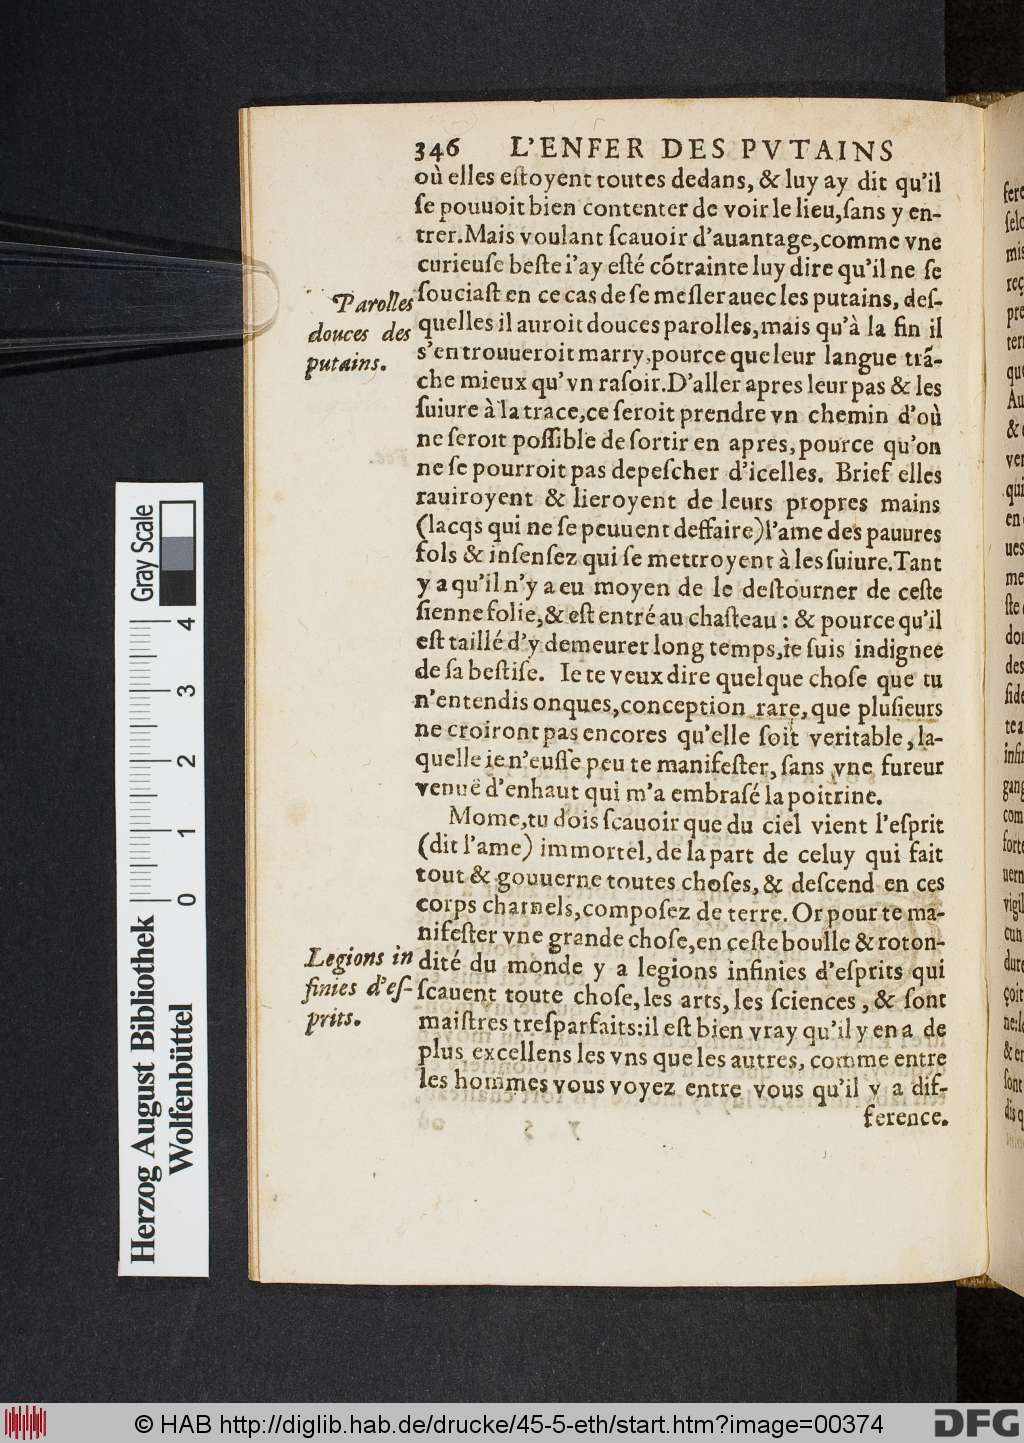 346 L'ENFER DES PVTAINS
où elles eſtoyent toutes dedans, & luy ay dit qu'il
ſe pouuoit bien contenter de voir le lieu, ſans y en-
trer. Mais voulant ſcauoir d'auantage, comme vne
curieuſe beſte i'ay eſté cõtrainte luy dire qu'il ne ſe
ſouciaſt en ce cas de ſe meſler auec les putains, deſ-
quelles il auroit douces parolles, mais qu'à la fin il
s'en trouueroit marry, pource que leur langue trã-
che mieux qu'vn raſoir. D'aller apres leur pas & les
ſuiure à la trace, ce ſeroit prendre vn chemin d'où
ne ſeroit poſſible de ſortir en apres, pource qu'on
ne ſe pourroit pas depeſcher d'icelles. Brief elles
rauiroyent & lieroyent de leurs propres mains
(lacqs qui ne ſe peuuent deffaire) l'ame des pauures
fols & inſenſez qui ſe mettroyent à les ſuiure. Tant
y a qu'il n'y a eu moyen de le deſtourner de ceſte
ſienne folie, & eſt entré au chaſteau : & pource qu'il
eſt taillé d'y demeurer long temps, ie ſuis indignee
de ſa beſtiſe. Ie te veux dire quelque choſe que tu
n'entendis onques, conception rare, que pluſieurs
ne croiront pas encores qu'elle ſoit veritable, la-
quelle ie n'euſſe peu te manifeſter, ſans vne fureur
venuë d'enhaut qui m'a embraſé la poitrine.
Mome, tu dois ſcauoir que du ciel vient l'eſprit
(dit l'ame) immortel, de la part de celuy qui fait
tout & gouuerne toutes choſes, & deſcend en ces
corps charnels, compoſez de terre. Or pour te ma-
nifeſter vne grande choſe, en ceſte boulle & roton-
dité du monde y a legions infinies d'eſprits qui
ſcauent toute choſe, les arts, les ſciences, & ſont
maiſtres treſparfaits: il eſt bien vray qu'il y en a de
plus excellens les vns que les autres, comme entre
les hommes vous voyez entre vous qu'il y a dif-
ference.
Parolles
douces des
putains.
Legions in
finies d'eſ-
prits.
Gray Scale
0 1 2 3 4
Herzog August Bibliothek
Wolfenbüttel
© HAB http://diglib.hab.de/drucke/45-5-eth/start.htm?image=00374
DFG